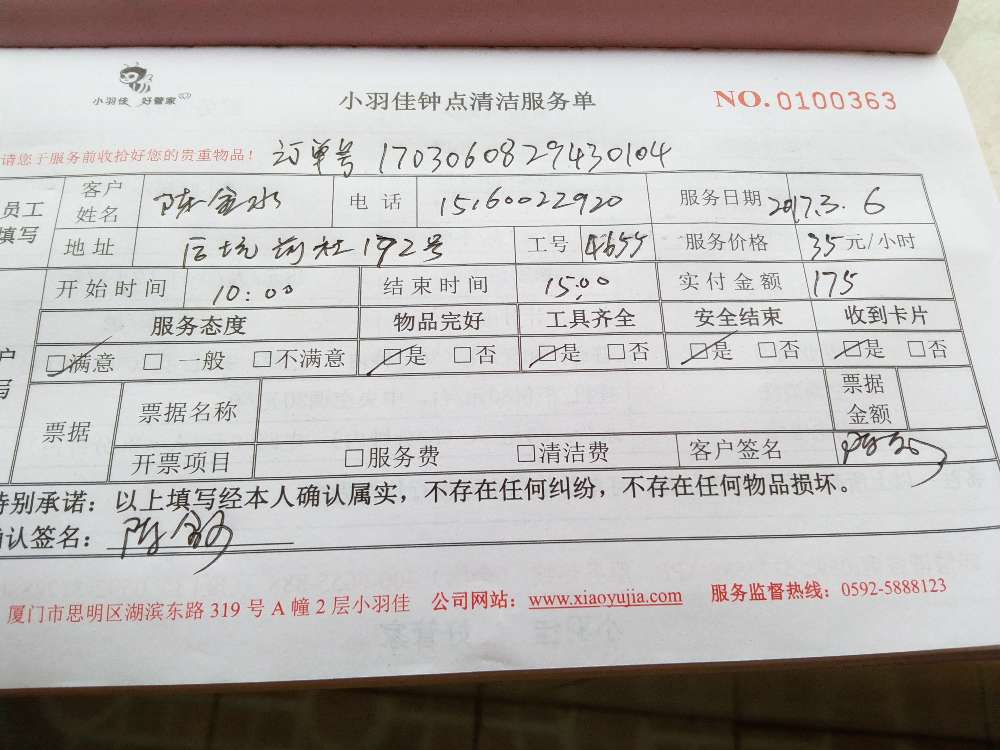 小羽佳 好管家
小羽佳钟点清洁服务单
NO.0100363
请您于服务前收拾好您的贵重物品！ 订单号 1703060829430104
员工 客户姓名 陈金水 电话 15160022920 服务日期 2017.3.6
填写 地址 社192号 工号 4655 服务价格 35元/小时
开始时间 10:00 结束时间 15:00 实付金额 175
服务态度 物品完好 工具齐全 安全结束 收到卡片
户 ☑满意 □一般 □不满意 ☑是 □否 ☑是 □否 ☑是 □否 ☑是 □否
写 票据 票据名称 票据金额
开票项目 □服务费 □清洁费 客户签名
特别承诺：以上填写经本人确认属实，不存在任何纠纷，不存在任何物品损坏。
确认签名：
厦门市思明区湖滨东路 319 号 A 幢 2 层小羽佳 公司网站：www.xiaoyujia.com 服务监督热线：0592-5888123